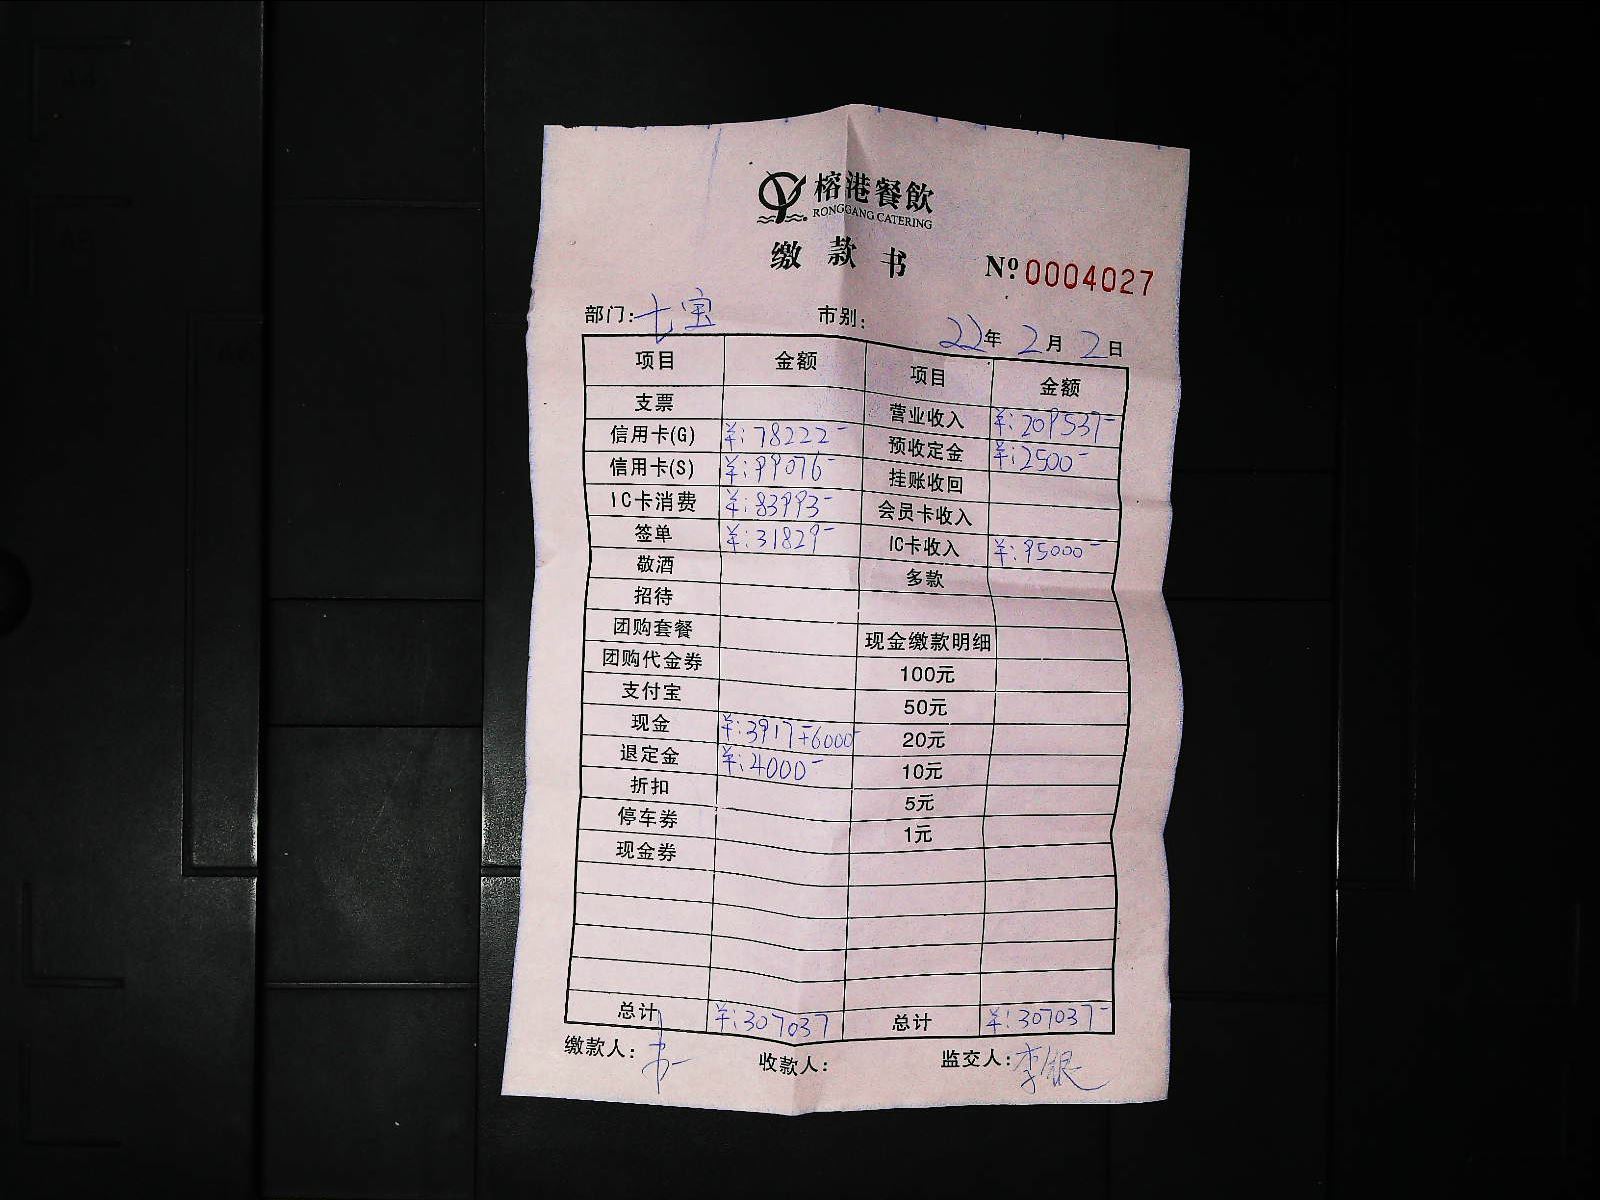 榕港餐飲
RONGGANG CATERING
缴款书 Nº 0004027
部门:七宝 市别: 22年2月2日
项目 金额 项目 金额
支票 营业收入 ¥:209537-
信用卡(G) ¥:78222- 预收定金 ¥:2500-
信用卡(S) ¥:99076- 挂账收回
IC卡消费 ¥:83993- 会员卡收入
签单 ¥:31829- IC卡收入 ¥:95000-
敬酒 多款
招待
团购套餐 现金缴款明细
团购代金券 100元
支付宝 50元
现金 ¥:3917+6000- 20元
退定金 ¥:4000- 10元
折扣 5元
停车券 1元
现金券
总计 ¥:307037 总计 ¥:307037-
缴款人: 收款人: 监交人:李银